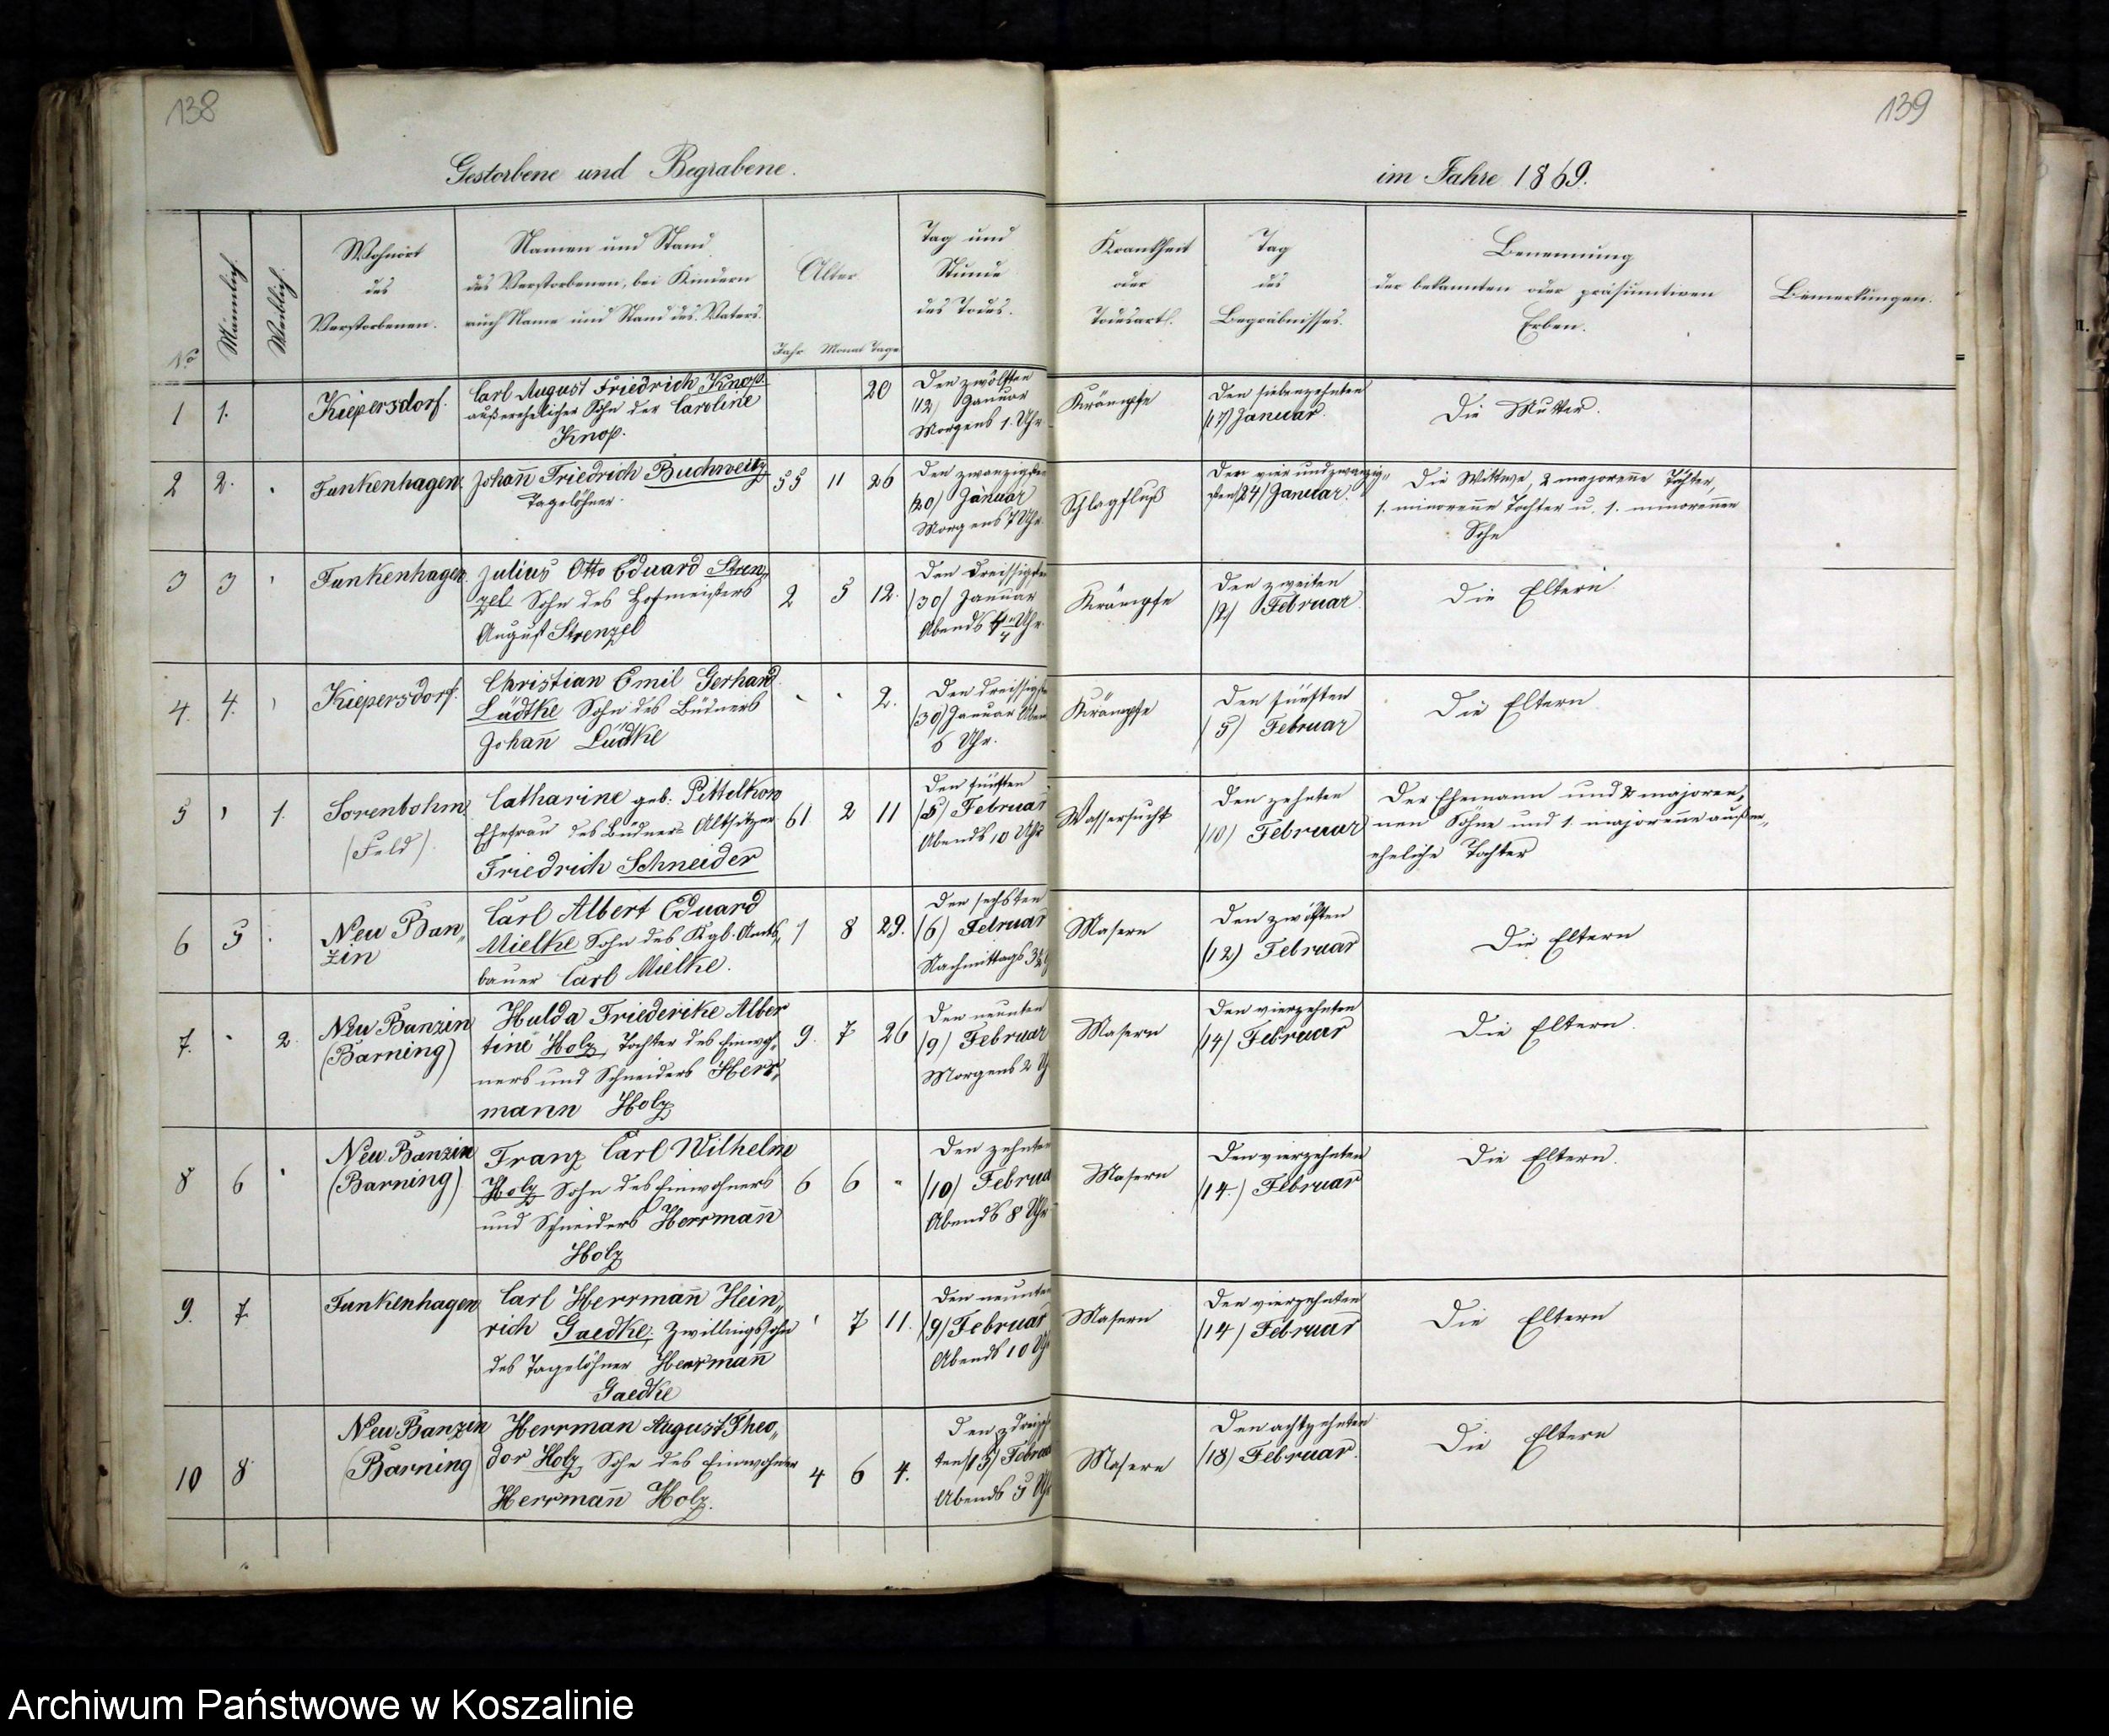 138
139
Gestorbene und Begrabene.
im Jahre 1869.
No
Männlich.
Weiblich.
Wohnort
des
Verstorbenen.
Namen und Stand
des Verstorbenen, bei Kindern
auch Name und Stand des Vaters.
Alter
Jahr Monat Tage
Tag und
Stunde
des Todes.
Krankheit
oder
Todesart.
Tag
des
Begräbnisses.
Benennung
der bekannten oder präsumtiven
Erben.
Bemerkungen.
1 1.
Kiepersdorf.
Carl August Friedrich Knop.
außerehelicher Sohn der Caroline
Knop.
20
Den zwölften
/12/ Januar
Morgens 1. Uhr
Krämpfe
Den siebenzehnten
/17/ Januar.
Die Mutter.
2 2.
Funkenhagen
Johann̄ Friedrich Buchweitz
Tagelöhner.
55 11 26
Den zwanzigsten
/20/ Januar
Morgens 7 Uhr
Schlagfluß
Den vier undzwanzig„
sten /24/ Januar.
Die Wittwe, 2 majoren̄e Töchter,
1. minoren̄e Tochter u. 1. minoren̄en
Sohn
3 3
Funkenhagen.
Julius Otto Eduard Stren„
zel Sohn des Hofmeisters
August Strenzel
2 5 12.
Den dreissigsten
/30/ Januar
Abends Uhr.
Krämpfe
Den zweiten
/2/ Februar
Die Eltern
4. 4.
Kiepersdorf.
Christian Emil Gerhard
Lüdtke Sohn des Büdners
Johann̄ Lüdtke
2.
Den dreissigsten
/30/ Januar Abends
6 Uhr.
Krämpfe
Den fünften
/5/ Februar
Die Eltern
5 1.
Sorenbohm
(Feld)
Catharine geb. Pittelkow
Ehefrau des Büdner= Altsitzer
Friedrich Schneider
61 2 11
Den fünften
/5/ Februar
Abends 10 Uhr
Wassersucht
Den zehnten
/10/ Februar
Der Ehemann und 2 majoren„
nen Söhne und 1. majoren̄e außer„
eheliche Tochter
6 5
Neu Ban„
zin
Carl Albert Eduard
Mielke Sohn des Kgl. Amts„
bauer Carl Mielke.
1 8 29.
Den sechsten
/6/ Februar
Nachmittags
Masern
Den zwölften
/12/ Februar
Die Eltern
7. 2.
Neu Banzin
(Barning)
Hulda Friederike Alber
tine Holz, Tochter des Einwoh„
ners und Schneiders Herr„
mann Holz
9. 7 26
Den neunten
/9/ Februar
Morgens 2 U
Masern
Den vierzehnten
/14/ Februar
Die Eltern.
8 6
Neu Banzin
(Barning)
Franz Carl Wilhelm
Holz Sohn des Einwohners
und Schneiders Herrmann̄
Holz
6 6 "
Den zehnten
/10/ Februa
Abends 8 Uhr
Masern
Den vierzehnten
/14./ Februar
Die Eltern.
9. 7.
Funkenhagen
Carl Herrmann̄ Hein„
rich Gaedke, Zwillingssohn
des Tagelöhner Herrmann̄
Gaedke
7 11.
Den neunten
/9/ Februar
Abends 10 Uh
Masern
Den vierzehnten
/14/ Februar
Die Eltern
10 8
Neu Banzin
(Barning
Herrman August Theo„
dor Holz, Sohn des Einwohner
Herrmann̄ Holz.
4 6 4.
Den dreizehn
ten /13/ Februar
Abends 5 Uh
Masern
Den achtzehnten
/18/ Februar.
Die Eltern
Archiwum Państwowe w Koszalinie